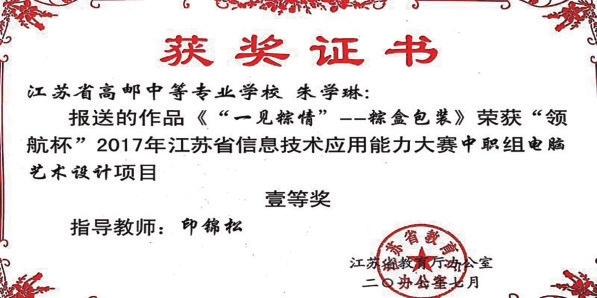 获奖证书
江苏省高邮中等专业学校 朱学琳:
报送的作品《“一见粽情”--粽盒包装》荣获“领
航杯”2017年江苏省信息技术应用能力大赛中职组电脑
艺术设计项目
壹等奖
指导教师：印锦松
江苏省教育厅办公室
二〇一七年七月